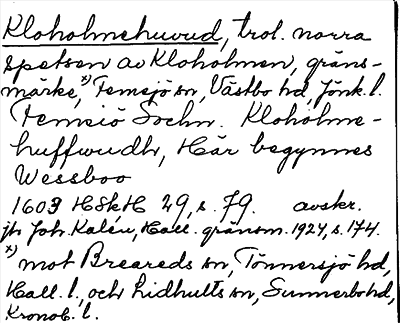 Kloholmehuvud, trol. norra
spetsen av Kloholmen, gräns-
märke,x) Femsjö sn, Västbo hd, Jönk. l.
Femsiö Sochn. Kloholme-
huffwudh, Här begynnes
Wessboo
1603 HSkH 29, s. 79. avskr.
jfr Joh. Kalén, Hall. gränsm. 1924, s. 174.
x) mot Breareds sn, Tönnersjö hd,
Hall. l., och Lidhults sn, Sunnerbo hd,
Kronob. l.